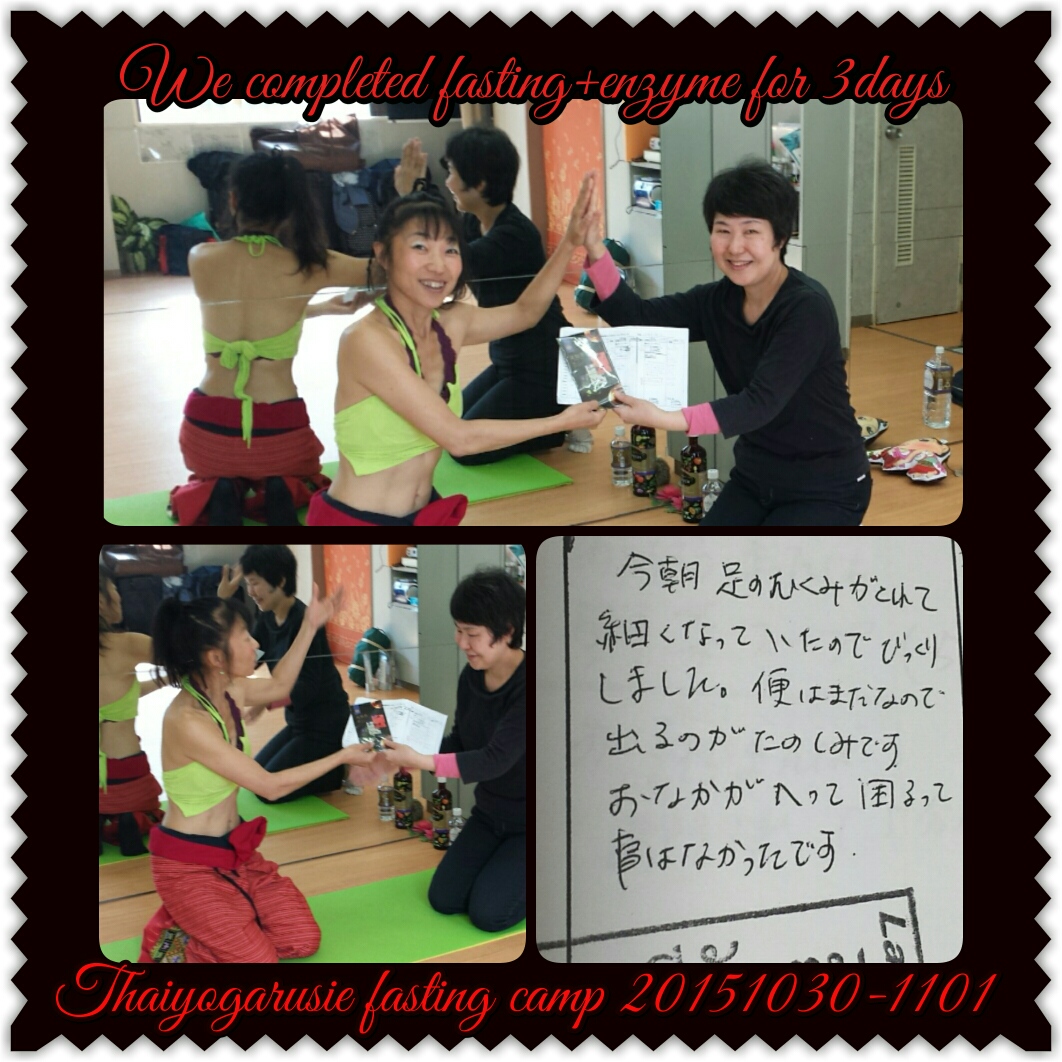 We completed fasting+enzyme for 3days
今朝 足のむくみがとれて
細くなって いたので びっくり
しました。便はまだなので
出るのが たのしみです
おなかが へって 困るって
事はなかったです.
Thaiyogarusie fasting camp 20151030-1101